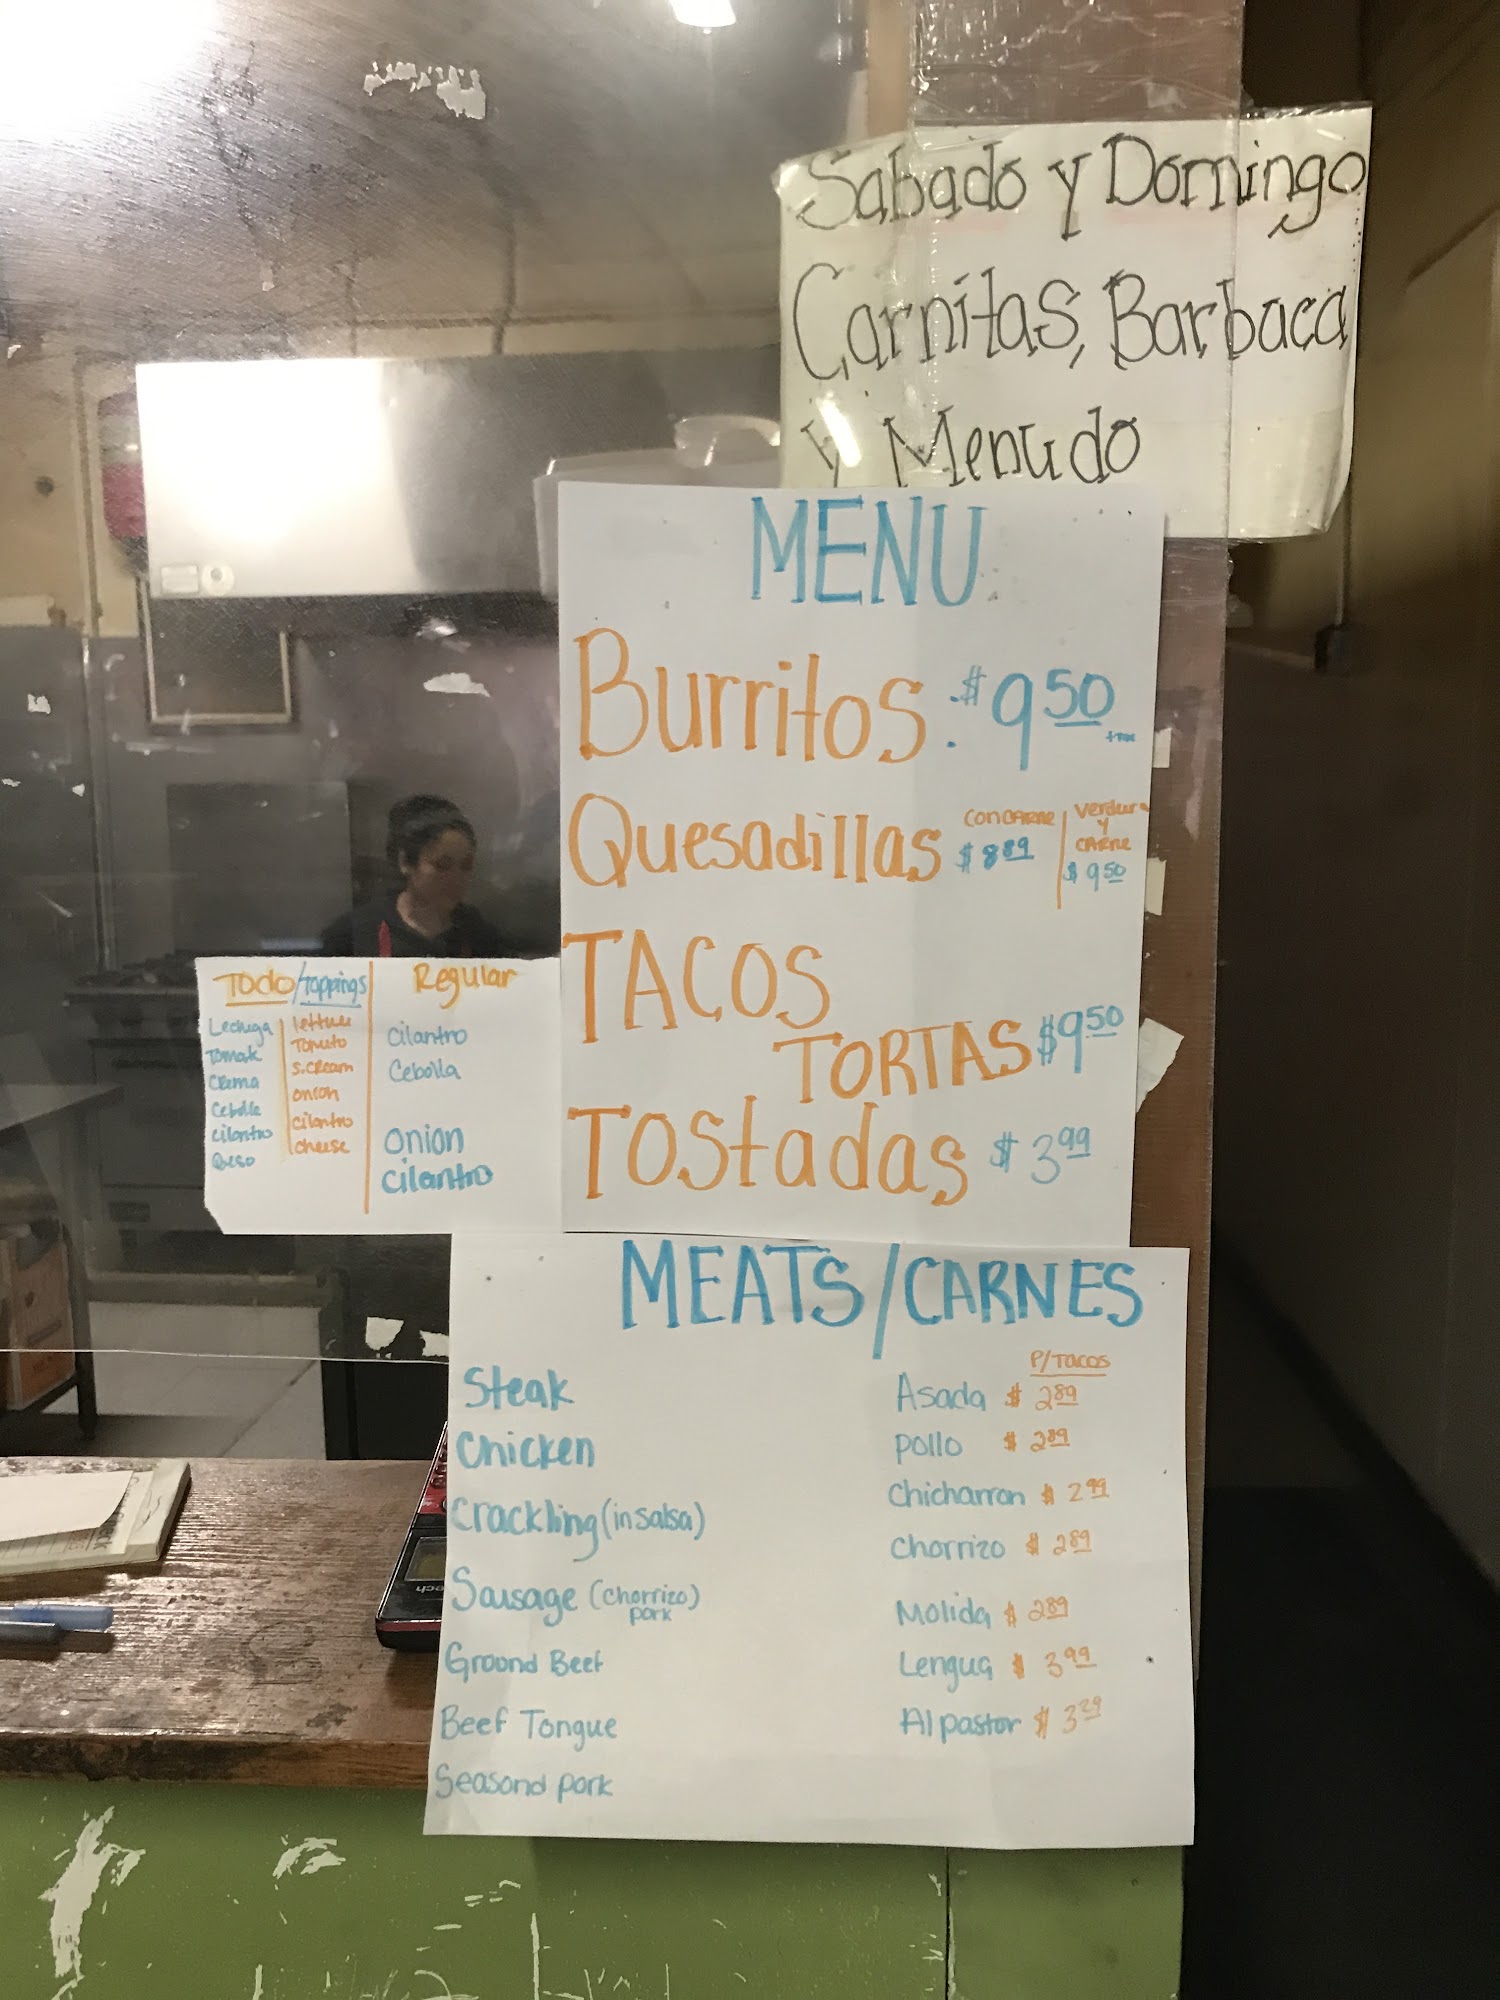 Sabado y Domingo
Carnitas, Barbaca
y Menudo
MENU
Burritos : $9.50
+ TAX
Quesadillas
CON CARNE
$8.89
Verdura
y
CARNE
$9.50
TACOS
TORTAS $9.50
TOStadas $3.99
TODO/toppings
Lechuga
Tomate
Crema
Cebolla
cilantro
Queso
lettuce
TOMATO
S.CREAM
onion
cilantro
cheese
Regular
cilantro
Cebolla
onion
cilantro
MEATS/CARNES
P/TACOS
Steak
Asada $2.89
Chicken
pollo $2.89
Crackling (in salsa)
Chicharron $2.99
Sausage (chorrizo)
pork
Chorrizo $2.89
Ground Beef
Molida $2.89
Beef Tongue
Lengua $3.99
Seasond pork
Al pastor $3.29